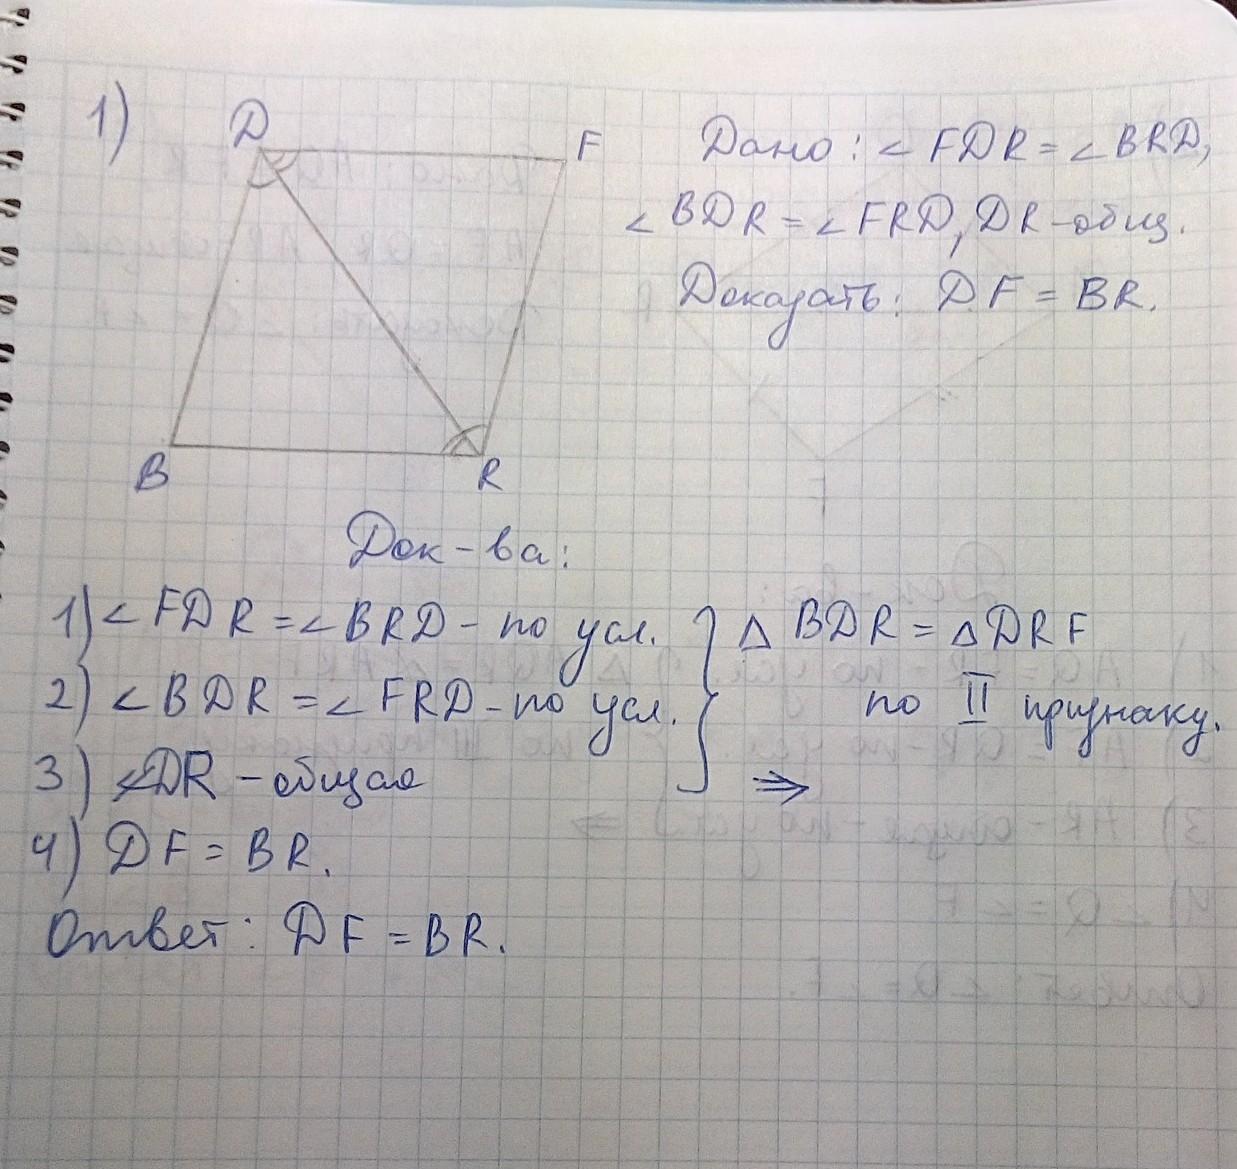 1)
D
F
B
R
Дано: ∠FDR = ∠BRD,
∠BDR = ∠FRD, DR - общ.
Доказать: DF = BR.
Док-ва:
1) ∠FDR = ∠BRD - по усл.
2) ∠BDR = ∠FRD - по усл.
3) DR - общая
} △BDR = △DRF
по II признаку.
⇒
4) DF = BR.
Ответ: DF = BR.